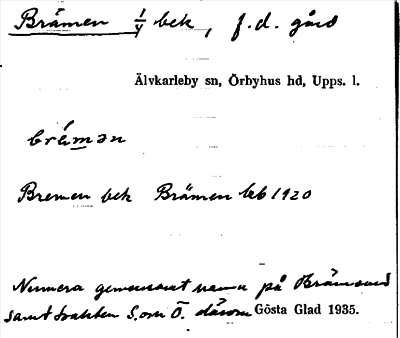 Brämen 1/4 bek, f.d. gård
Älvkarleby sn, Örbyhus hd, Upps. l.
brä́mən
Bremen bek Brämen beb 1920
Numera gemensamt namn på Brämsand
samt trakten S. om Ö. därom Gösta Glad 1935.